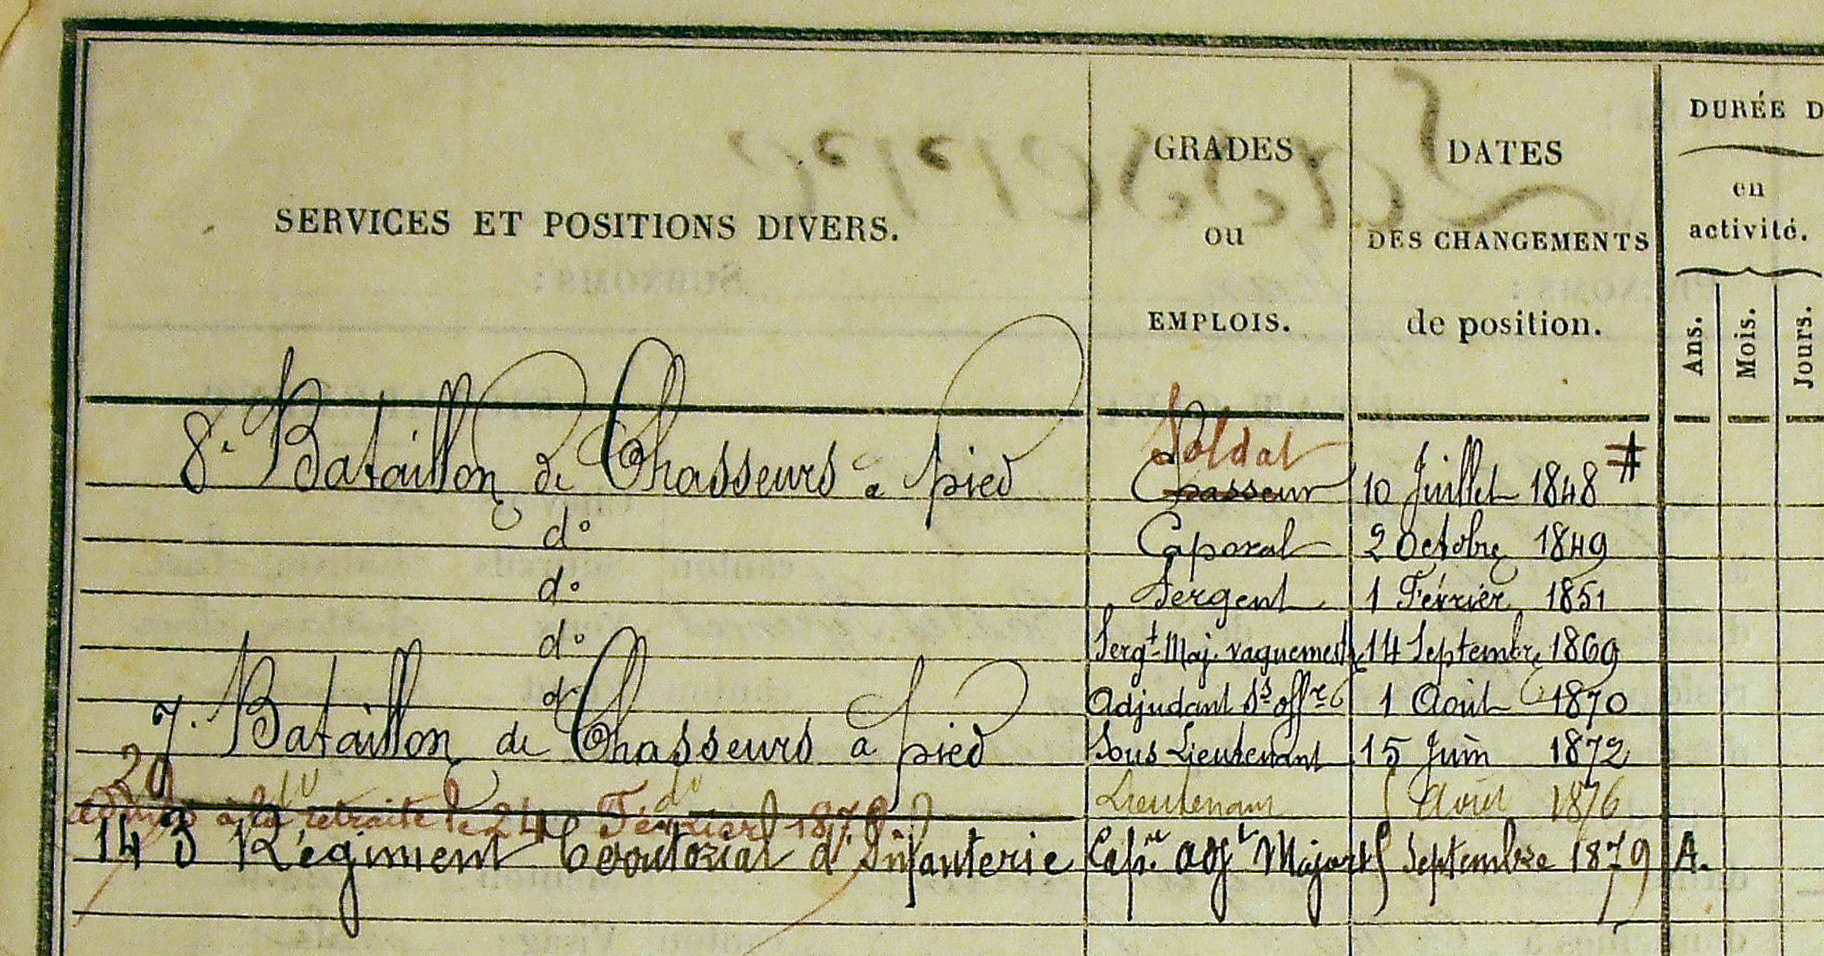 SERVICES ET POSITIONS DIVERS.
GRADES
ou
EMPLOIS.
DATES
DES CHANGEMENTS
de position.
DURÉE D
en
activité.
Ans.
Mois.
Jours.
Soldat
8e Bataillon de Chasseurs à pied Chasseur 10 Juillet 1848 #
do Caporal 2 Octobre 1849
do Sergent 1 Février 1851
do Sergt Maj. vaguemestre 14 Septembre 1869
do Adjudant Ss offre 1 Août 1870
7. Bataillon de Chasseurs à pied Sous Lieutenant 15 Juin 1872
do do Lieutenant Août 1876
à la retraite le 24 Février
143 Régiment territorial d'Infanterie Capne adjt Major Septembre 1879 A.